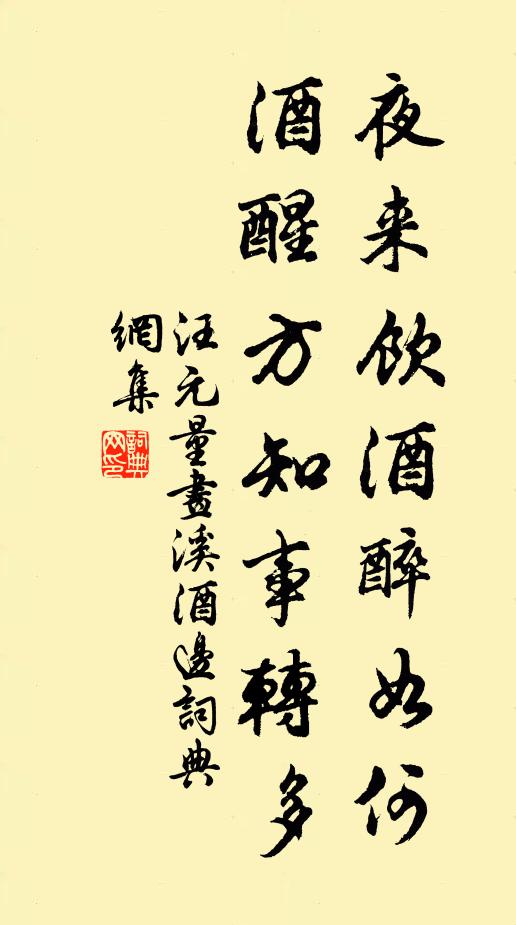 夜来飲酒醉如何
酒醒方知事轉多
汪元量畫溪酒邊詞典
網集
詞典網印